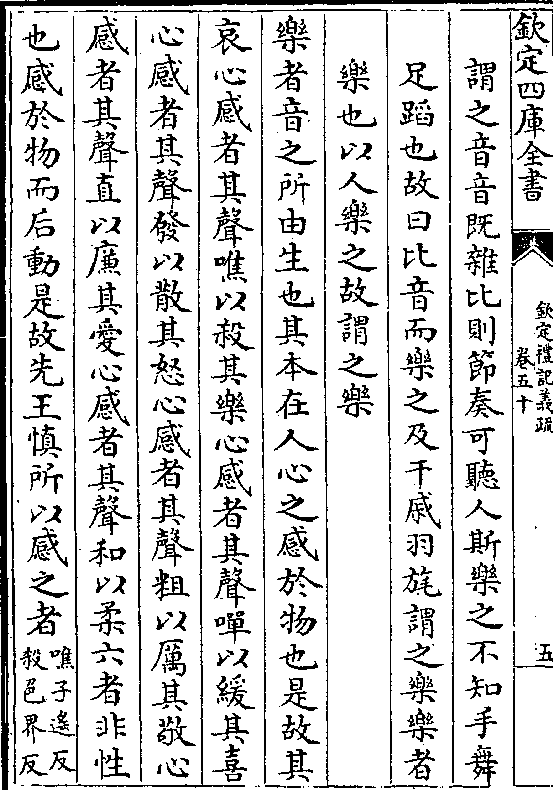 欽定四庫全書
欽定禮記義疏
卷五十
五
謂之音音既雜比則節奏可聽人斯樂之不知手舞
足蹈也故曰比音而樂之及干戚羽旄謂之樂樂者
樂也以人樂之故謂之樂
樂者音之所由生也其本在人心之感於物也是故其
哀心感者其聲噍以殺其樂心感者其聲嘽以緩其喜
心感者其聲發以散其怒心感者其聲粗以厲其敬心
感者其聲直以廉其愛心感者其聲和以柔六者非性
也感於物而后動是故先王慎所以感之者
噍子遙反
殺色界反